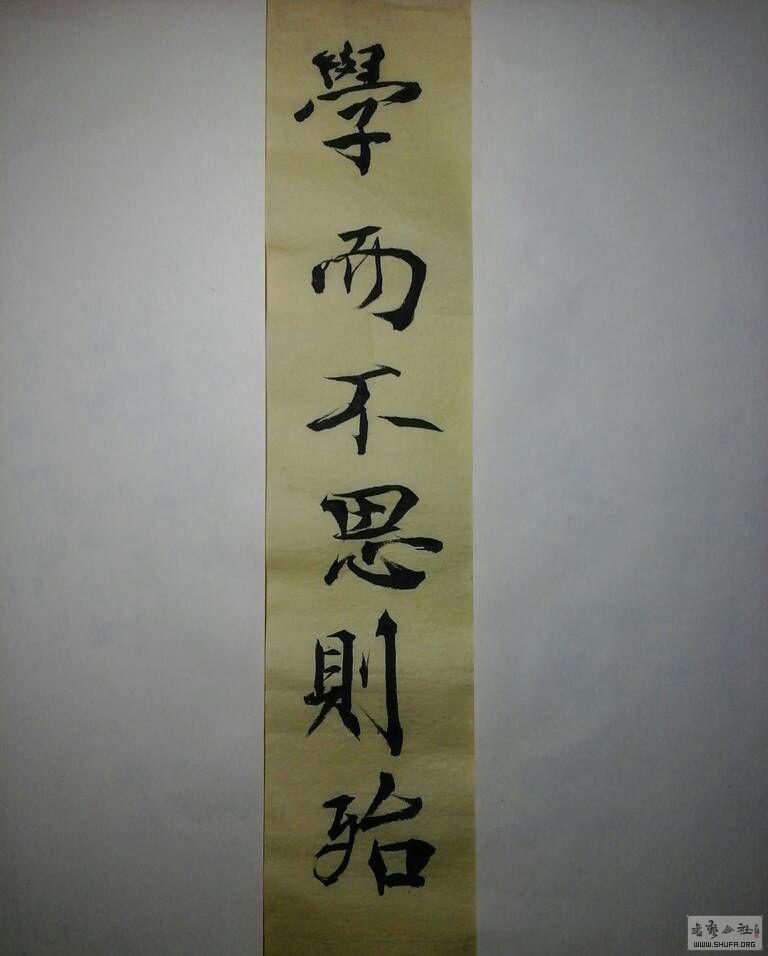 學而不思則殆
書藝公社
WWW.SHUFA.ORG